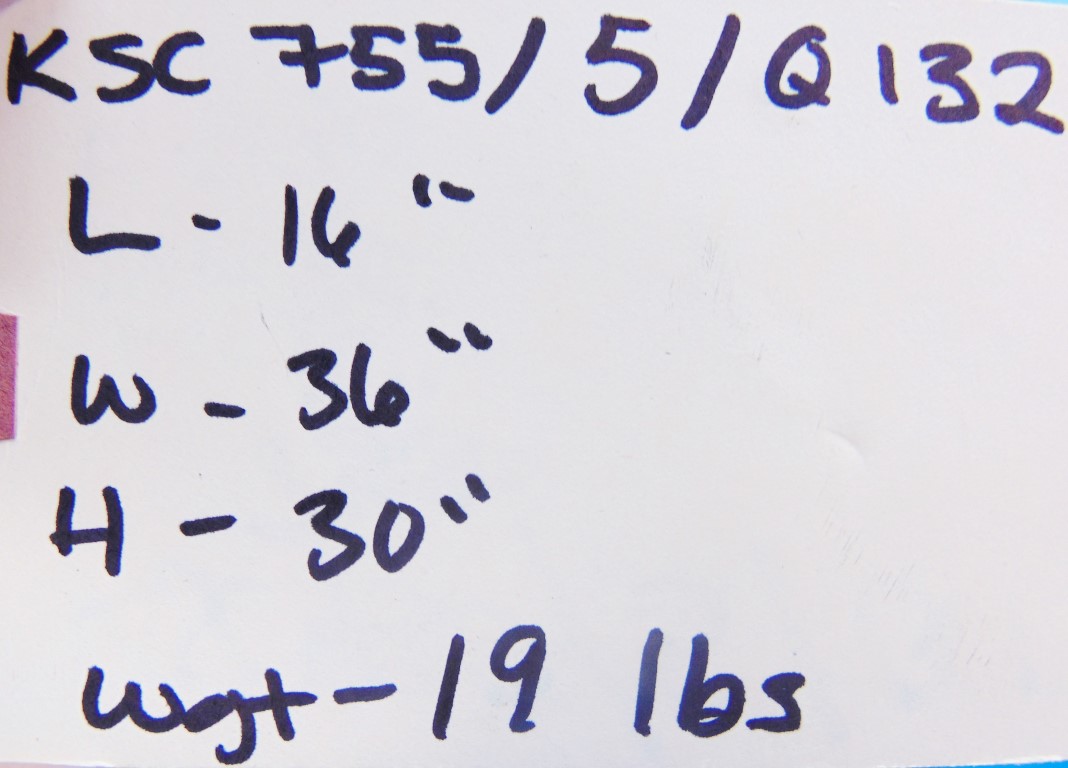 KSC 755/5/Q 132
L - 16"
W - 36"
H - 30"
wgt - 19 lbs